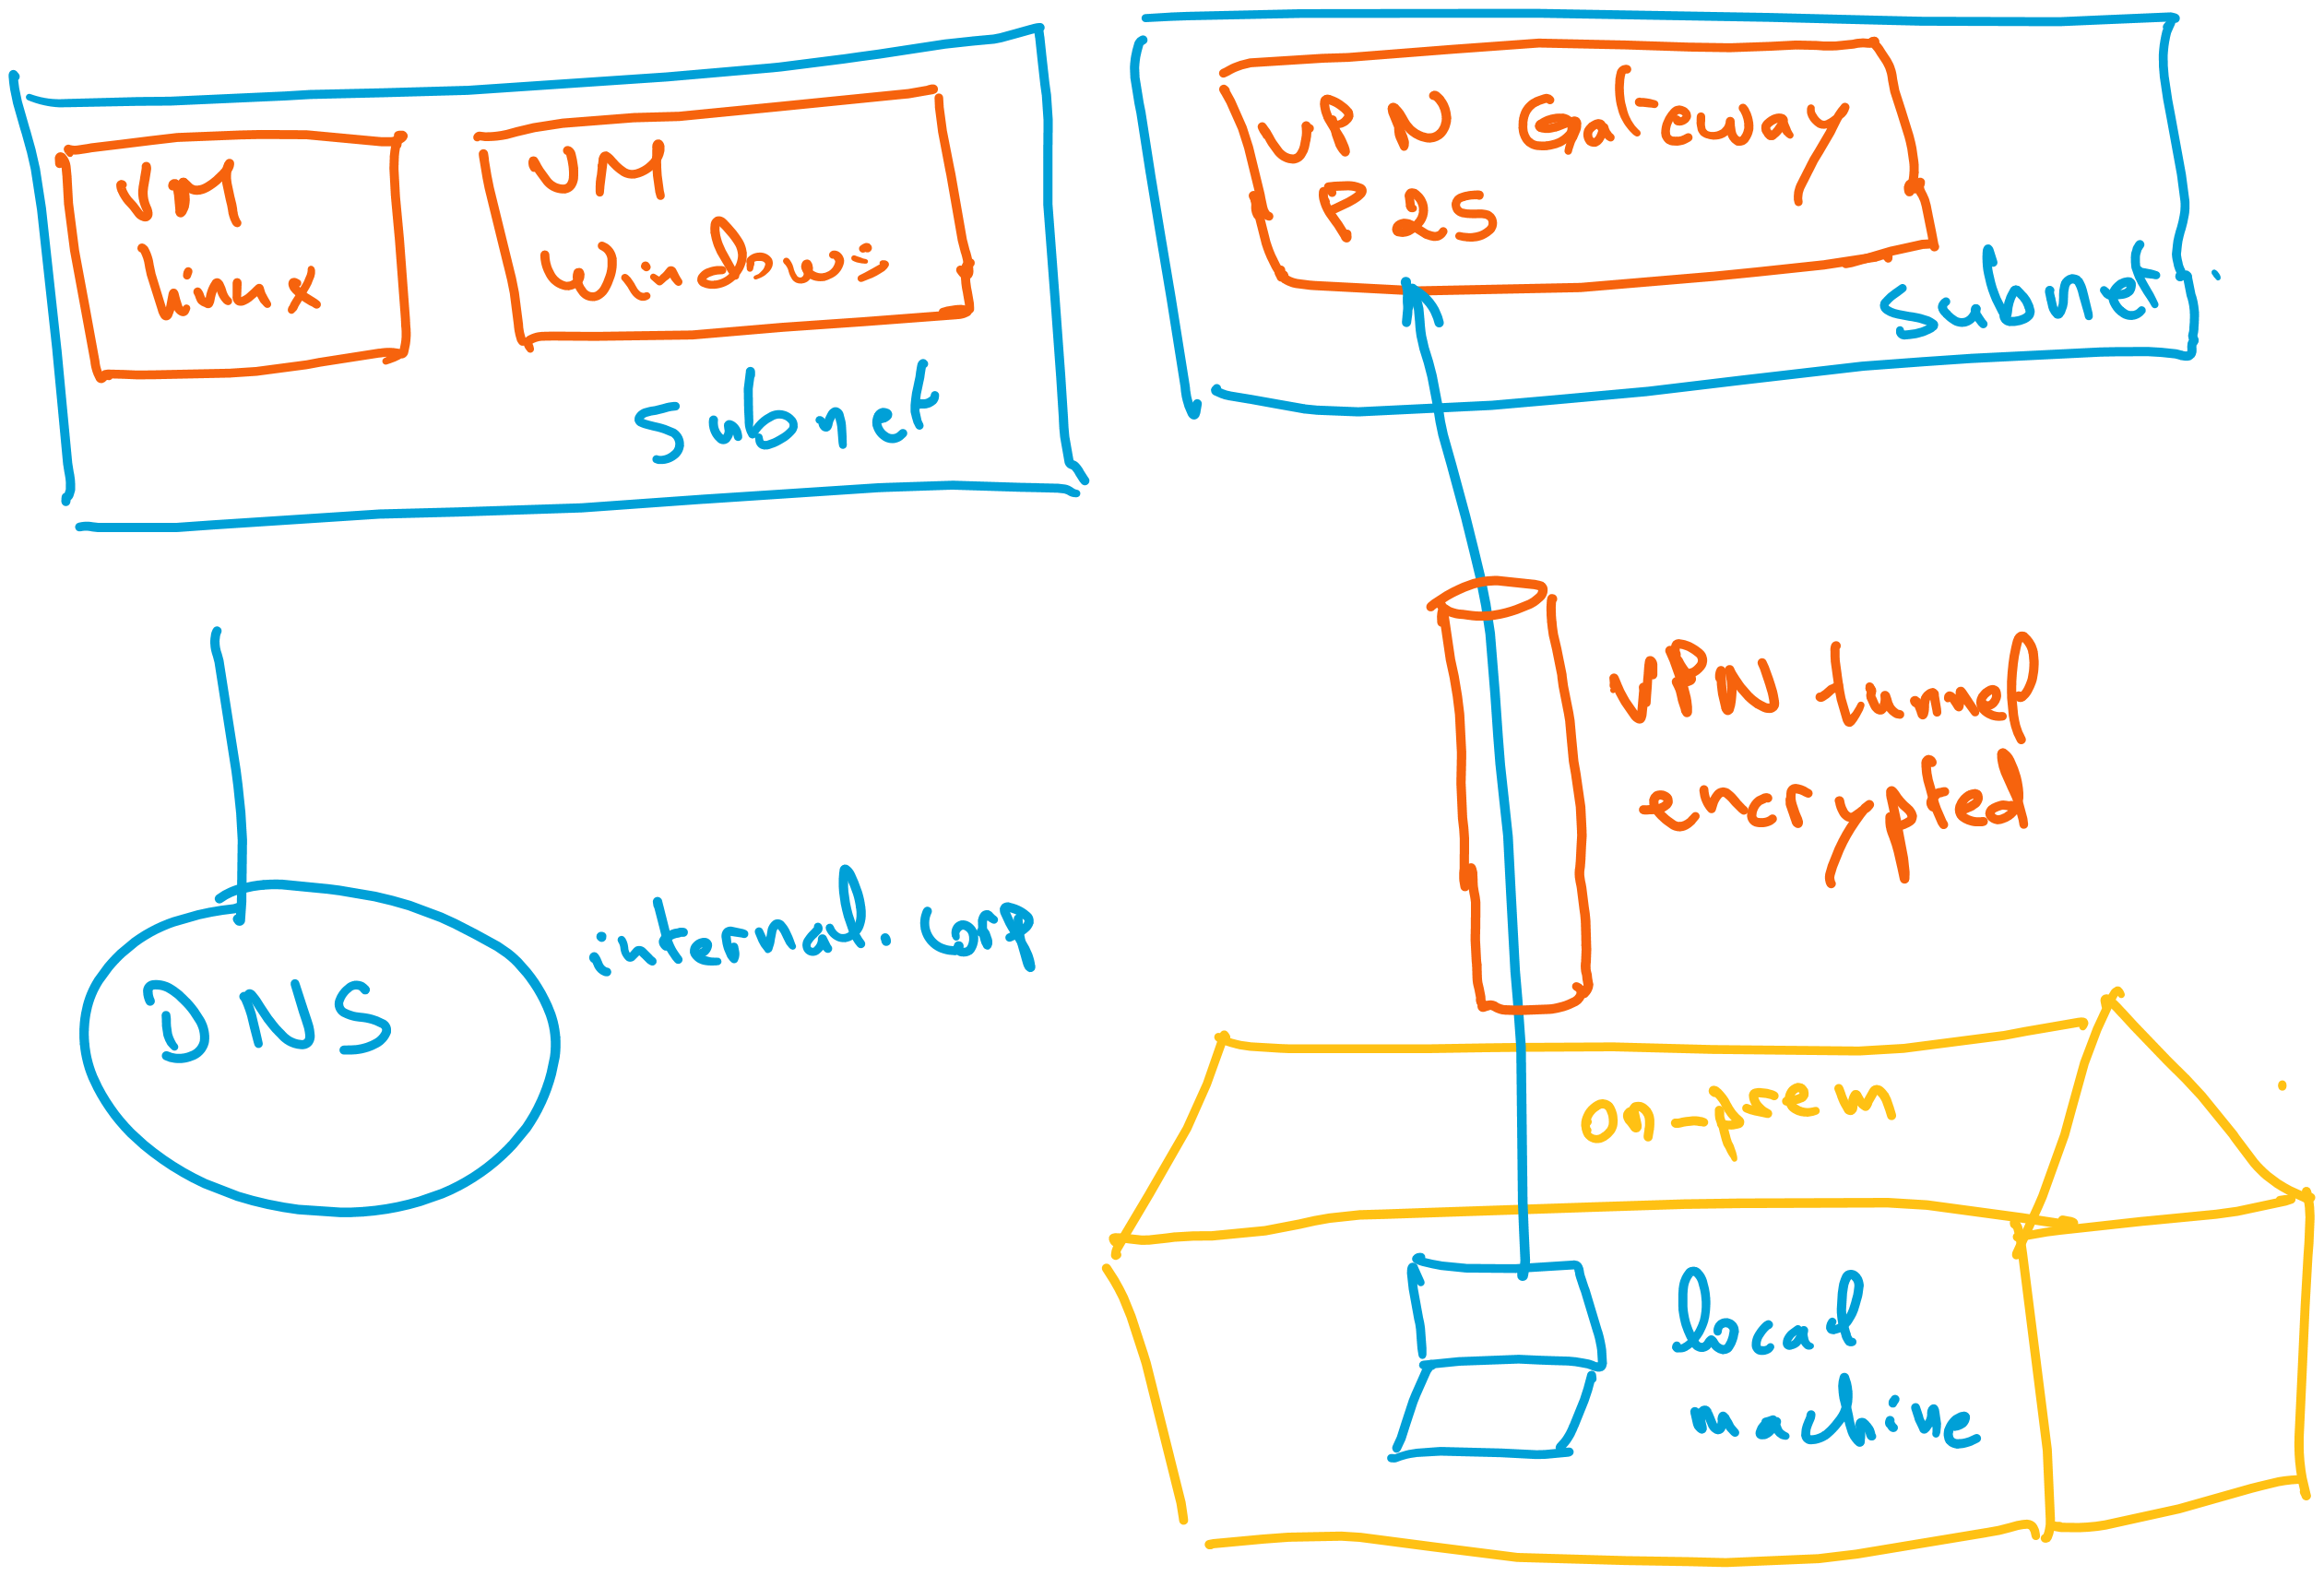 VM
Linux
VM
Windows
Subnet
VPN Gateway
P2S
Subnet
VPN tunnel
encrypted
DNS
internal.corp
on-prem
local
machine